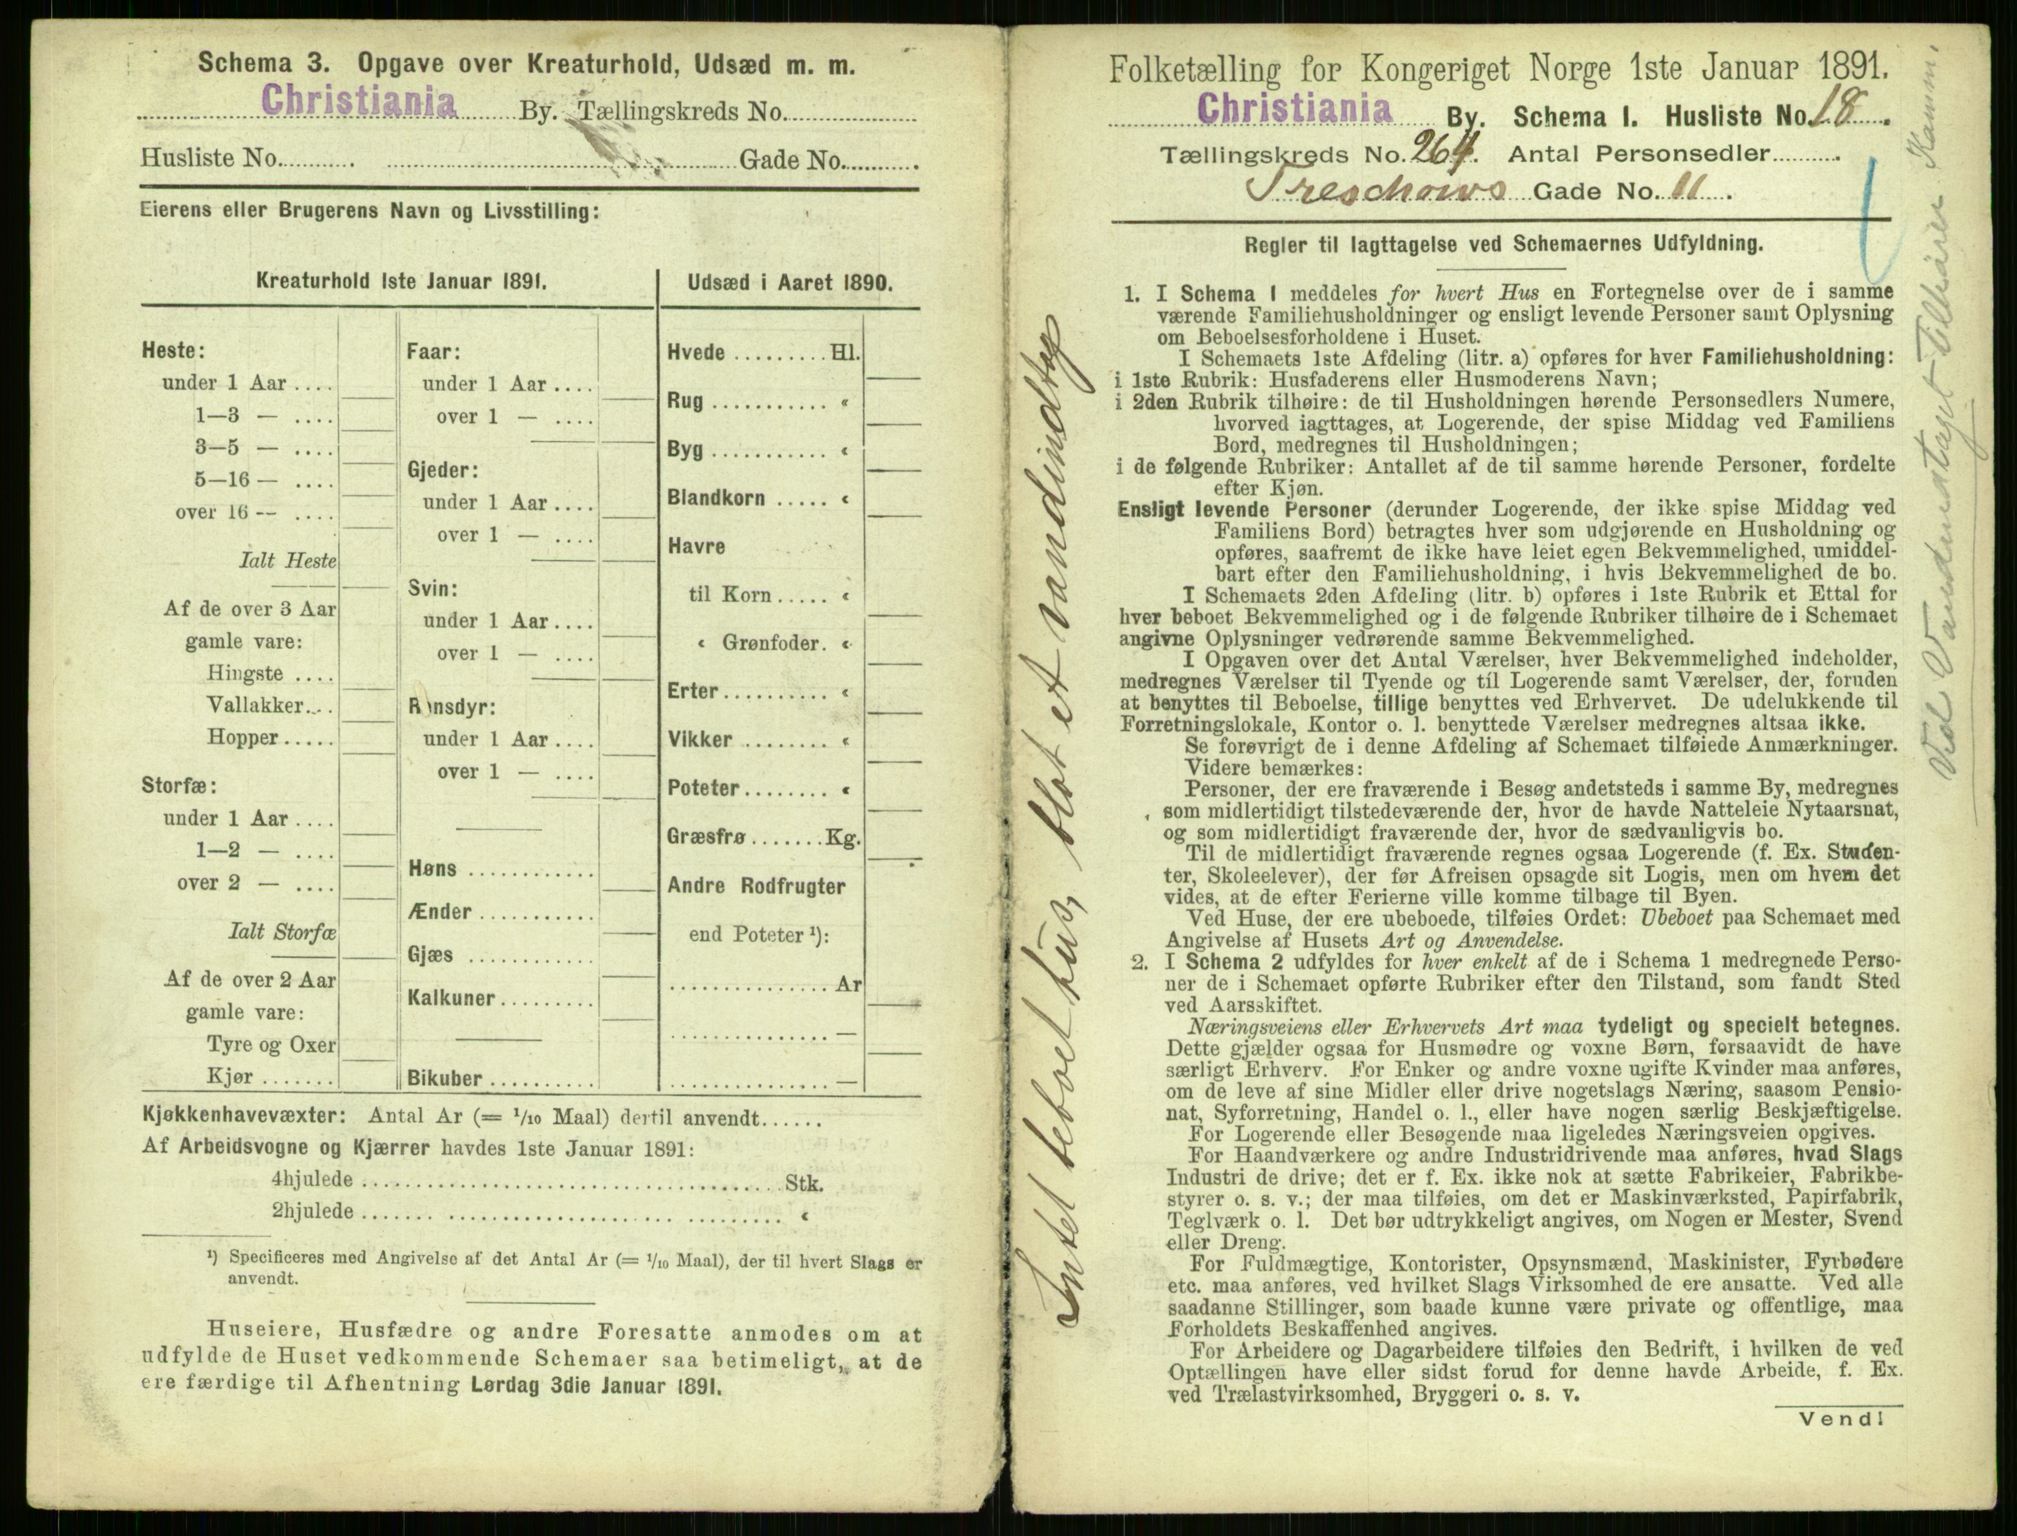 Schema 3. Opgave over Kreaturhold, Udsæd m. m.
Christiania By. Tællingskreds No.
Husliste No. Gade No.
Eierens eller Brugerens Navn og Livsstilling:
Kreaturhold 1ste Januar 1891.
Heste:
under 1 Aar ....
1—3 — ....
3—5 — ....
5—16 — ....
over 16 -- ....
Ialt Heste
Af de over 3 Aar
gamle vare:
Hingste ....
Vallakker....
Hopper.....
Storfæ:
under 1 Aar ....
1—2 — ....
over 2 — ....
Ialt Storfæ
Af de over 2 Aar
gamle vare:
Tyre og Oxer
Kjør .......
Faar:
under 1 Aar ....
over 1 — ....
Gjeder:
under 1 Aar ....
over 1 — ....
Svin:
under 1 Aar ....
over 1 — ....
Rensdyr:
under 1 Aar ....
over 1 — ....
Høns ............
Ænder ...........
Gjæs ............
Kalkuner .........
Bikuber ..........
Udsæd i Aaret 1890.
Hvede ......... Hl.
Rug ........... «
Byg ........... «
Blandkorn ..... «
Havre
til Korn ..... «
« Grønfoder. «
Erter .......... «
Vikker ........ «
Poteter ........ «
Græsfrø ....... Kg.
Andre Rodfrugter
end Poteter ¹):
............... Ar
............... —
............... —
Kjøkkenhavevæxter: Antal Ar (= 1/10 Maal) dertil anvendt......
Af Arbeidsvogne og Kjærrer havdes 1ste Januar 1891:
4hjulede ........................................ Stk.
2hjulede ........................................ «
¹) Specificeres med Angivelse af det Antal Ar (= 1/10 Maal), der til hvert Slags er
anvendt.
Huseiere, Husfædre og andre Foresatte anmodes om at
udfylde de Huset vedkommende Schemaer saa betimeligt, at de
ere færdige til Afhentning Lørdag 3die Januar 1891.
Intet beboet hus, blot et vandindtag
Folketælling for Kongeriget Norge 1ste Januar 1891.
Christiania By. Schema I. Husliste No. 18.
Tællingskreds No. 264. Antal Personsedler.
Treschows Gade No. 11.
Regler til Iagttagelse ved Schemaernes Udfyldning.
1. I Schema 1 meddeles for hvert Hus en Fortegnelse over de i samme
værende Familiehusholdninger og ensligt levende Personer samt Oplysning
om Beboelsesforholdene i Huset.
I Schemaets 1ste Afdeling (litr. a) opføres for hver Familiehusholdning:
i 1ste Rubrik: Husfaderens eller Husmoderens Navn;
i 2den Rubrik tilhøire: de til Husholdningen hørende Personsedlers Numere,
hvorved iagttages, at Logerende, der spise Middag ved Familiens
Bord, medregnes til Husholdningen;
i de følgende Rubriker: Antallet af de til samme hørende Personer, fordelte
efter Kjøn.
Ensligt levende Personer (derunder Logerende, der ikke spise Middag ved
Familiens Bord) betragtes hver som udgjørende en Husholdning og
opføres, saafremt de ikke have leiet egen Bekvemmelighed, umiddel-
bart efter den Familiehusholdning, i hvis Bekvemmelighed de bo.
I Schemaets 2den Afdeling (litr. b) opføres i 1ste Rubrik et Ettal for
hver beboet Bekvemmelighed og i de følgende Rubriker tilhøire de i Schemaet
angivne Oplysninger vedrørende samme Bekvemmelighed.
I Opgaven over det Antal Værelser, hver Bekvemmelighed indeholder,
medregnes Værelser til Tyende og til Logerende samt Værelser, der, foruden
at benyttes til Beboelse, tillige benyttes ved Erhvervet. De udelukkende til
Forretningslokale, Kontor o. l. benyttede Værelser medregnes altsaa ikke.
Se forøvrigt de i denne Afdeling af Schemaet tilføiede Anmærkninger.
Videre bemærkes:
Personer, der ere fraværende i Besøg andetsteds i samme By, medregnes
som midlertidigt tilstedeværende der, hvor de havde Natteleie Nytaarsnat,
og som midlertidigt fraværende der, hvor de sædvanligvis bo.
Til de midlertidigt fraværende regnes ogsaa Logerende (f. Ex. Studen-
ter, Skoleelever), der før Afreisen opsagde sit Logis, men om hvem det
vides, at de efter Ferierne ville komme tilbage til Byen.
Ved Huse, der ere ubeboede, tilføies Ordet: Ubeboet paa Schemaet med
Angivelse af Husets Art og Anvendelse.
2. I Schema 2 udfyldes for hver enkelt af de i Schema 1 medregnede Perso-
ner de i Schemaet opførte Rubriker efter den Tilstand, som fandt Sted
ved Aarsskiftet.
Næringsveiens eller Erhvervets Art maa tydeligt og specielt betegnes.
Dette gjælder ogsaa for Husmødre og voxne Børn, forsaavidt de have
særligt Erhverv. For Enker og andre voxne ugifte Kvinder maa anføres,
om de leve af sine Midler eller drive nogetslags Næring, saasom Pensio-
nat, Syforretning, Handel o. l., eller have nogen særlig Beskjæftigelse.
For Logerende eller Besøgende maa ligeledes Næringsveien opgives.
For Haandværkere og andre Industridrivende maa anføres, hvad Slags
Industri de drive; det er f. Ex. ikke nok at sætte Fabrikeier, Fabrikbe-
styrer o. s. v.; der maa tilføies, om det er Maskinværksted, Papirfabrik,
Teglværk o. l. Det bør udtrykkeligt angives, om Nogen er Mester, Svend
eller Dreng.
For Fuldmægtige, Kontorister, Opsynsmænd, Maskinister, Fyrbødere
etc. maa anføres, ved hvilket Slags Virksomhed de ere ansatte. Ved alle
saadanne Stillinger, som baade kunne være private og offentlige, maa
Forholdets Beskaffenhed angives.
For Arbeidere og Dagarbeidere tilføies den Bedrift, i hvilken de ved
Optællingen have eller sidst forud for denne havde Arbeide, f. Ex.
ved Trælastvirksomhed, Bryggeri o. s. v.
Vend!
Ved Vandindtaget Tilhører Komm.